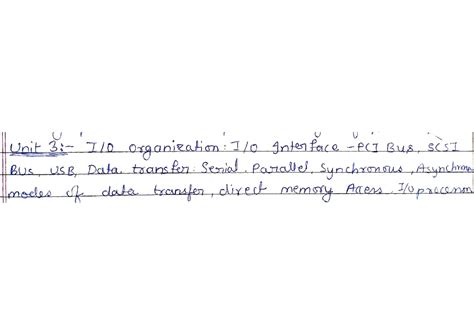 Unit 3:- I/O organization: I/O Interface - PCI Bus, SCSI
Bus, USB, Data transfer: Serial, Parallel, Synchronous, Asynchronous
modes of data transfer, direct memory Access, I/O processor